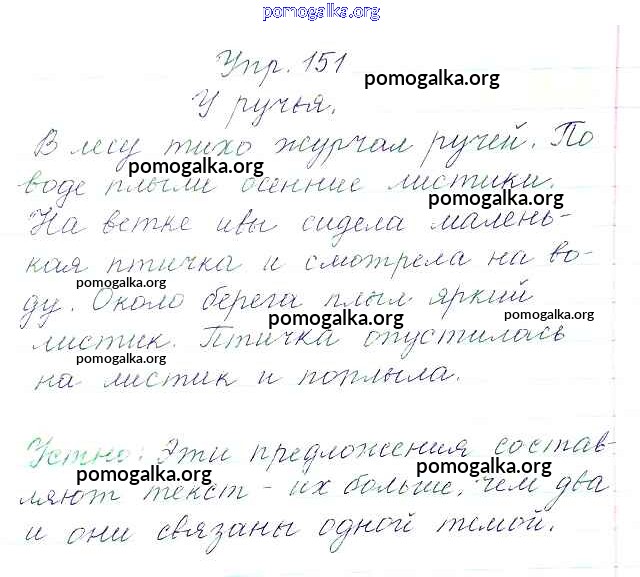 pomogalka.org
Упр. 151
pomogalka.org
У ручья.
В лесу тихо журчал ручей. По
pomogalka.org
воде плыли осенние листики.
pomogalka.org
На ветке ивы сидела малень-
кая птичка и смотрела на во-
pomogalka.org
ду. Около берега плыл яркий
pomogalka.org
pomogalka.org
листик. Птичка опустилась
pomogalka.org
на листик и поплыла.
Устно: Эти предложения состав-
pomogalka.org
pomogalka.org
ляют текст - их больше, чем два
и они связаны одной темой.